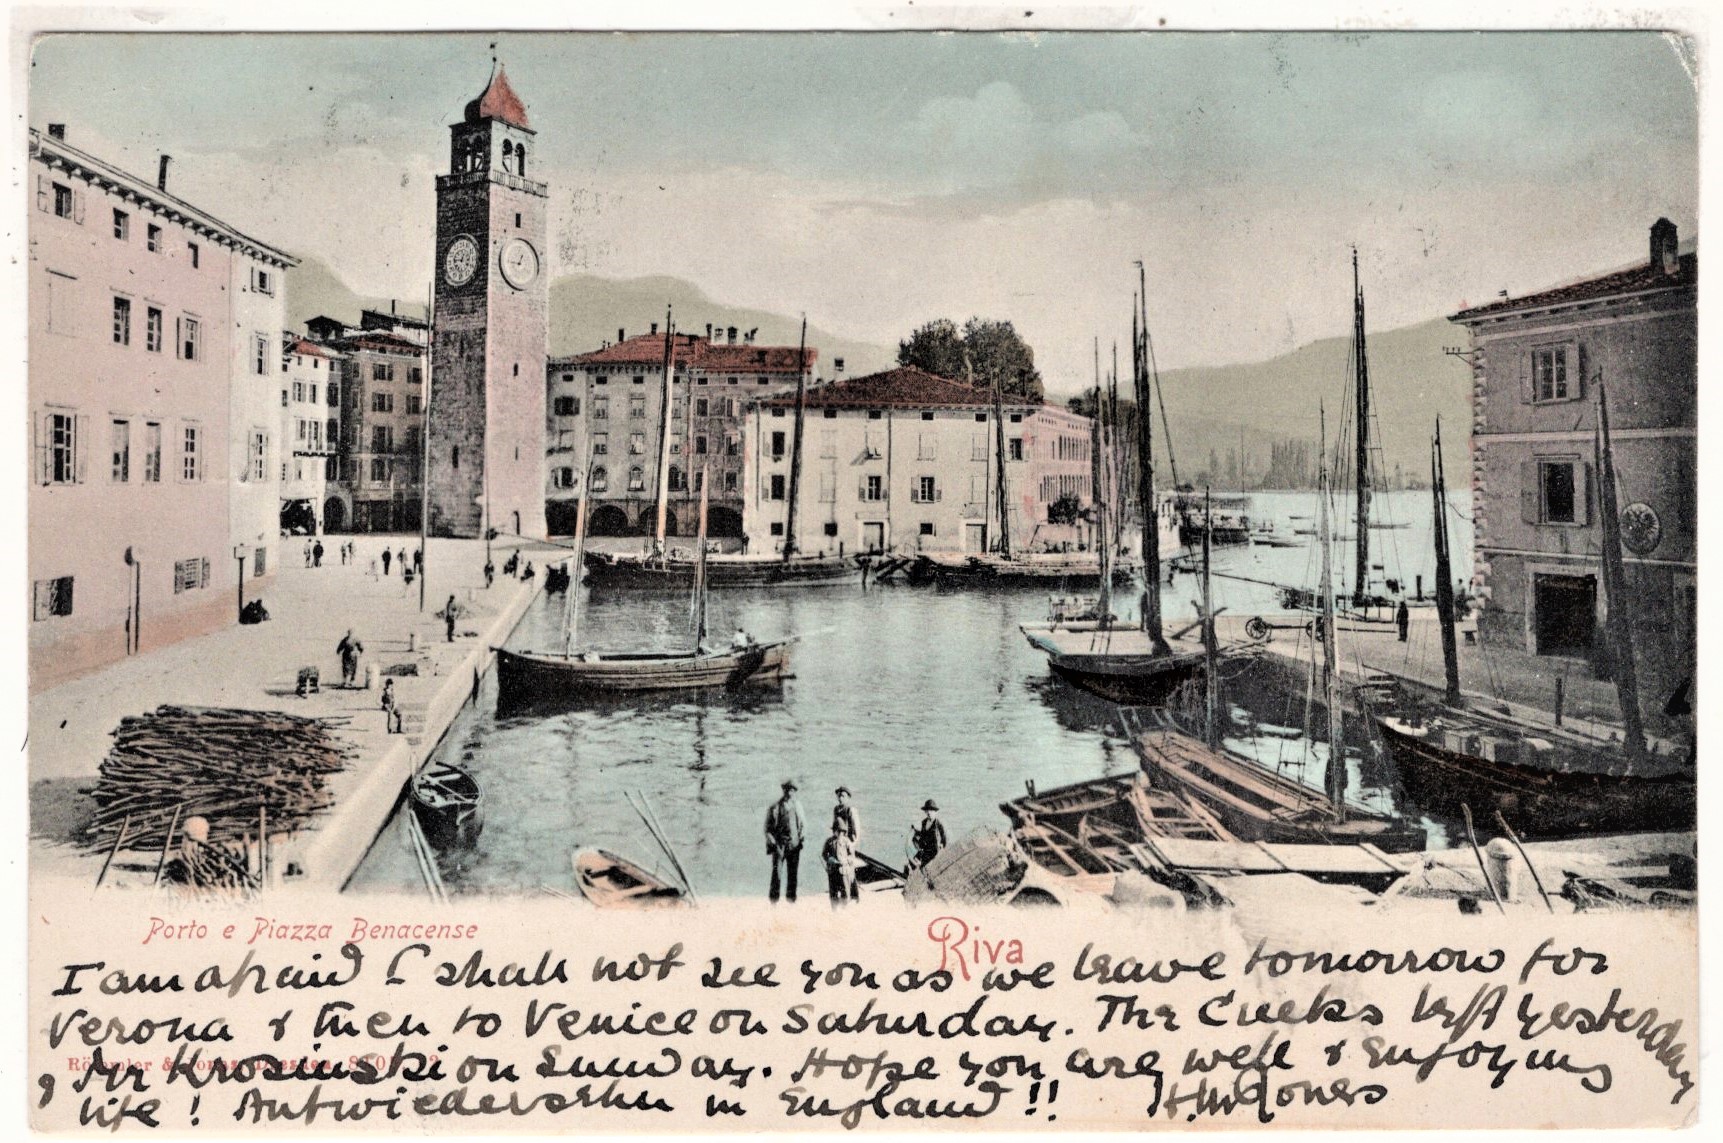 Porto e Piazza Benacense
Riva
I am afraid I shall not see you as we leave tomorrow for
Verona & then to Venice on Saturday. The Cueeks left yesterday
& Mr Krosinski on Sunday. Hope you are well & enjoying
life! Antwiedersehn in England!! H.M. Jones